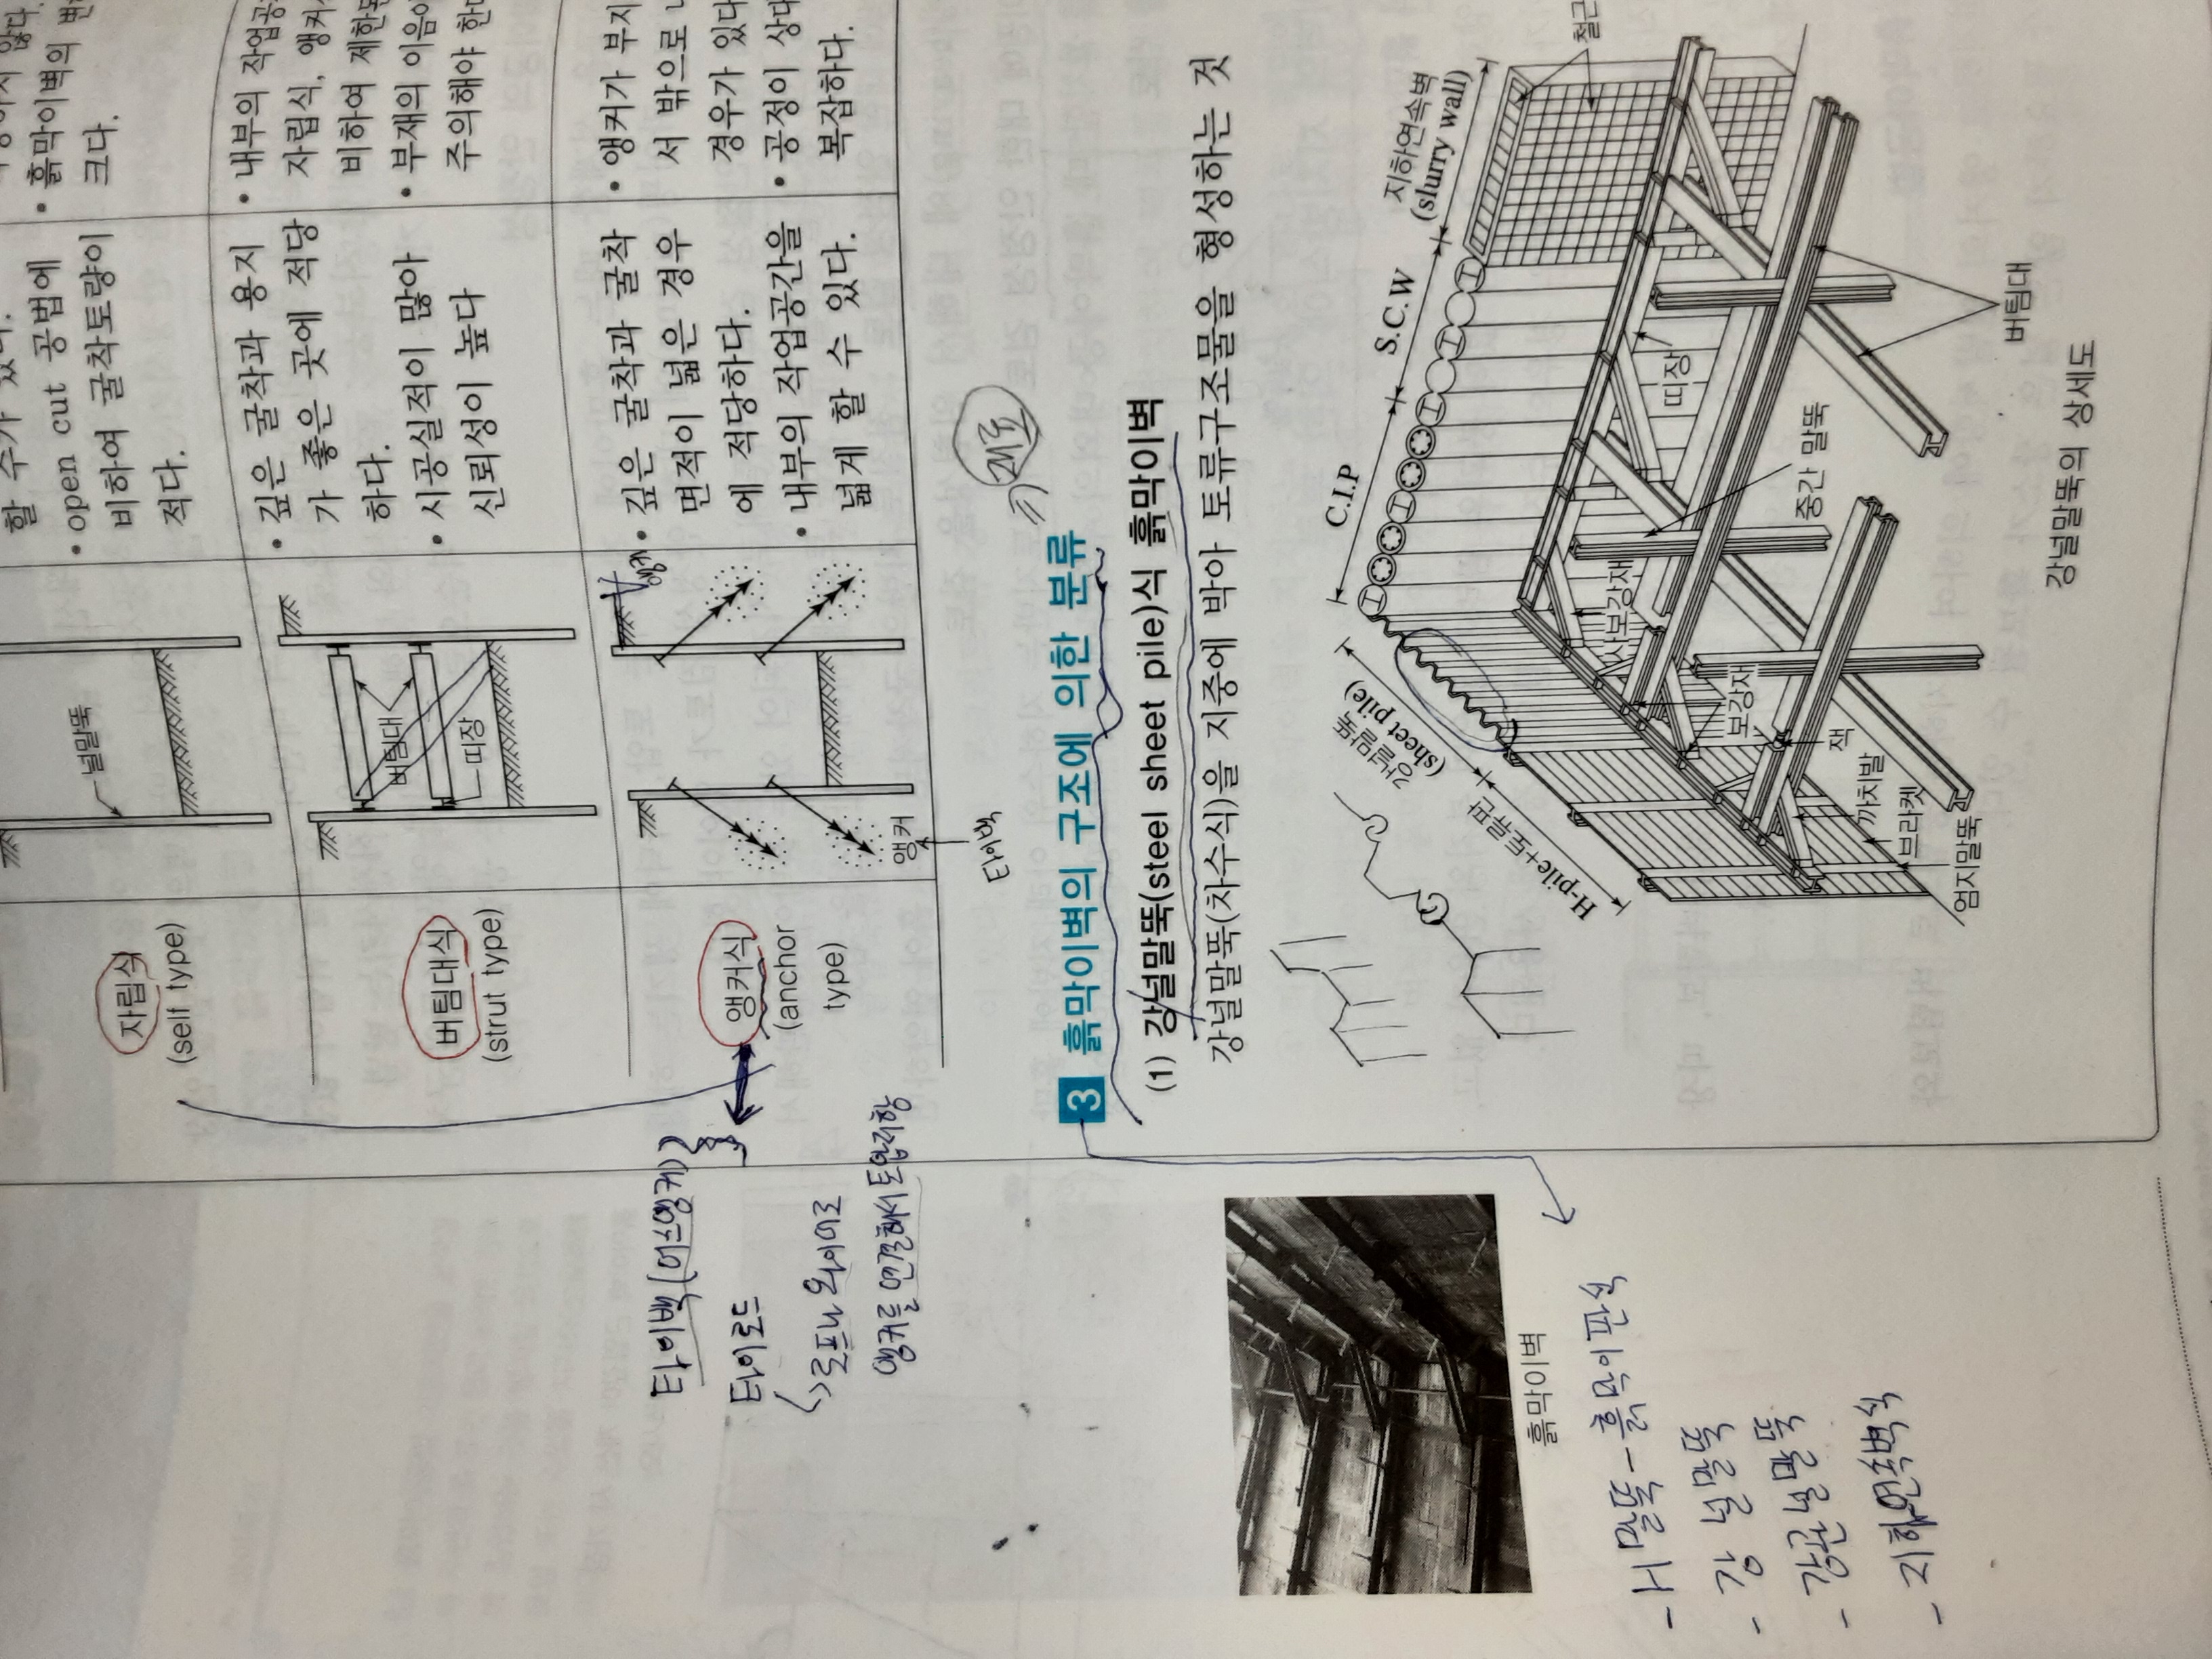 할 수가 있다.
• open cut 공법에
비하여 굴착토량이
적다.
• 흙막이벽의 변
크다.
널말뚝
자립식
(self type)
버팀대식
(strut type)
버팀대
띠장
• 깊은 굴착과 용지
가 좋은 곳에 적당
하다.
• 시공실적이 많아
신뢰성이 높다
• 내부의 작업공
자립식, 앵커
비하여 제한된
• 부재의 이음이
주의해야 한다
앵커식
(anchor
type)
앵커
앵커
타이백
• 깊은 굴착과 굴착
면적이 넓은 경우
에 적당하다.
• 내부의 작업공간을
넓게 할 수 있다.
• 앵커가 부지
서 밖으로 나
경우가 있다
• 공정이 상대
복잡하다.
타이백(어스앵커)
타이로드
로프나 와이어로
앵커를 연결해서
3 흙막이벽의 구조에 의한 분류
재료
(1) 강널말뚝(steel sheet pile)식 흙막이벽
강널말뚝(차수식)을 지중에 박아 토류구조물을 형성하는 것
H-pile+토류판
강널말뚝
(sheet pile)
C.I.P
S.C.W
지하연속벽
(slurry wall)
철근
띠장
중간 말뚝
사보강재
보강재
버팀대
잭
까치발
브라켓
엄지말뚝
강널말뚝의 상세도
흙막이벽
- H말뚝-흙막이판식
- 강 널말뚝
- 강관널말뚝
- 지하연속벽식